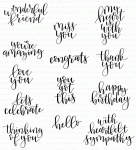 wonderful
friend
miss
you
my
heart
is
with
you
you're
amazing
congrats
thank
you
love
you
you
got
this
happy
birthday
let's
celebrate
hello
with
heartfelt
sympathy
thinking
of you